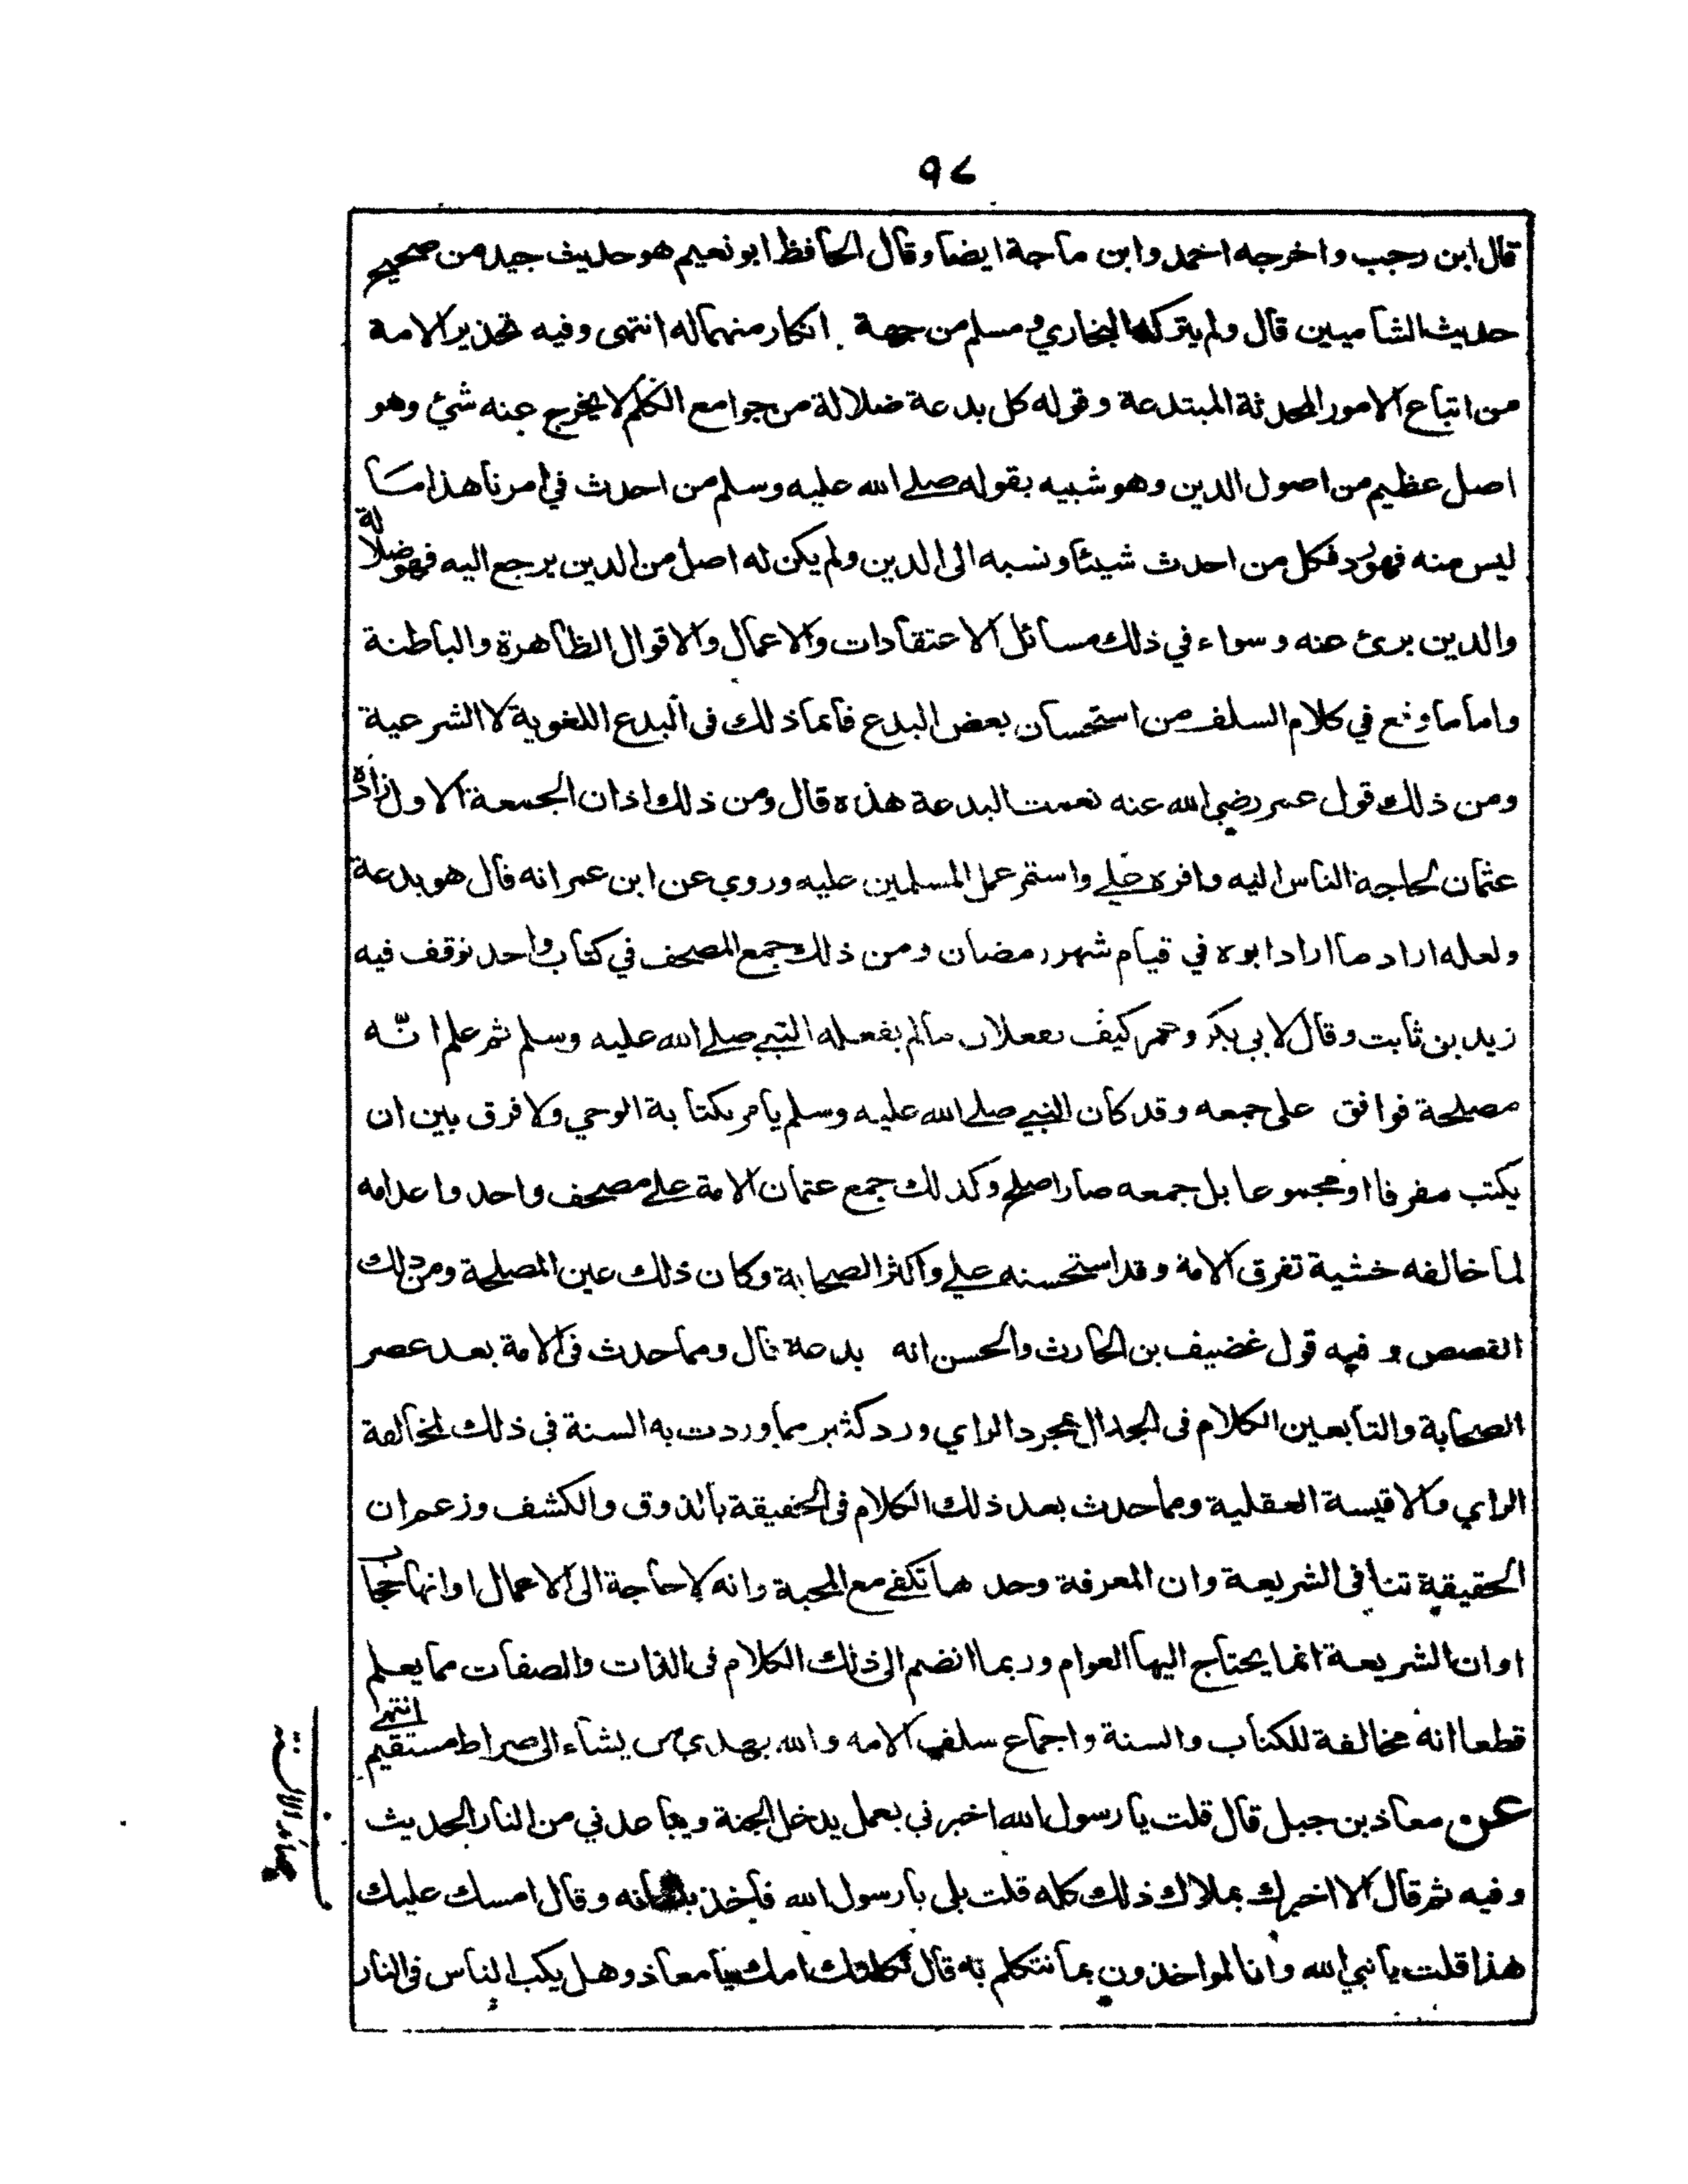 ٩٧
قال ابن رجب واخرجه احمد وابن ماجة ايضا وقال الحافظ ابو نعيم هو حديث جيد من صحيح
حديث الشاميين قال ولم يتركه البخاري و مسلم من جهة انكار منهما له انتهى وفيه تحذير الامة
من اتباع الامور المحدثة المبتدعة وقوله كل بدعة ضلالة من جوامع الكلم لا يخرج عنه شئ وهو
اصل عظيم من اصول الدين وهو شبيه بقوله صلى الله عليه وسلم من احدث في امرنا هذا ما
ليس منه فهو رد فكل من احدث شيئا ونسبه الى الدين ولم يكن له اصل من الدين يرجع اليه فهو ضلالة
والدين برئ عنه وسواء في ذلك مسائل الاعتقادات والاعمال والاقوال الظاهرة والباطنة
واما ما وقع في كلام السلف من استحسان بعض البدع فانما ذلك فى البدع اللغوية لا الشرعية
ومن ذلك قول عمر رضي الله عنه نعمت البدعة هذه قال ومن ذلك اذان الجمعة الاول زاده
عثمان لحاجة الناس اليه واقره علي واستمر عمل المسلمين عليه وروي عن ابن عمر انه قال هو بدعة
ولعله اراد ما اراد ابوه في قيام شهر رمضان ومن ذلك جمع المصحف في كتاب واحد توقف فيه
زيد بن ثابت وقال لابي بكر وعمر كيف تفعلان ما لم يفعله النبي صلى الله عليه وسلم ثم علم انّه
مصلحة فوافق على جمعه وقد كان النبي صلى الله عليه وسلم يامر بكتابة الوحي ولا فرق بين ان
يكتب مفرقا او مجموعا بل جمعه صار اصلح وكذلك جمع عثمان الامة على مصحف واحد واعدامه
لما خالفه خشية تفرق الامة وقد استحسنه علي واكثر الصحابة وكان ذلك عين المصلحة ومن ذلك
القصص و فيه قول غضيف بن الحارث والحسن انه بدعة قال ومما حدث فى الامة بعد عصر
الصحابة والتابعين الكلام فى الجدال بمجرد الراي ورد كثير مما وردت به السنة في ذلك لمخالفة
الراي والاقيسة العقلية ومما حدث بعد ذلك الكلام فى الحقيقة بالذوق والكشف وزعم ان
الحقيقة تنافى الشريعة وان المعرفة وحدها تكفي مع المحبة وانه لا حاجة الى الاعمال او انها حجاب
او ان الشريعة انما يحتاج اليها العوام وربما انضم الى ذلك الكلام فى الذات والصفات مما يعلم
قطعا انه مخالفة للكتاب والسنة واجماع سلف الامه والله يهدي من يشاء الى صراط مستقيم انتهى
عن معاذ بن جبل قال قلت يا رسول الله اخبرني بعمل يدخل الجنة ويباعدني من النار الحديث
وفيه ثم قال الا اخبرك بملاك ذلك كله قلت بلى يا رسول الله فاخذ بلسانه وقال امسك عليك
هذا قلت يا نبي الله وانا لمواخذون بما نتكلم به قال ثكلتك امك يا معاذ وهل يكب الناس فى النار